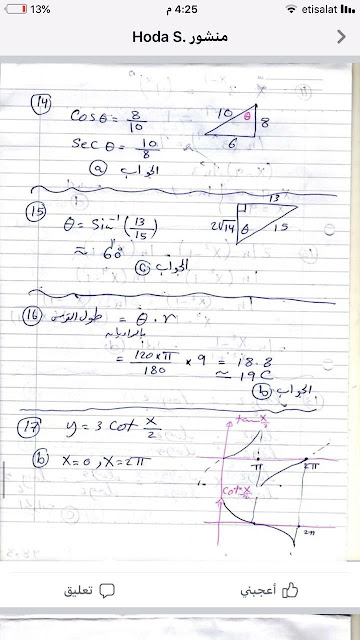 13% 4:25 م etisalat
منشور Hoda S.
14 Cosθ = 8/10
10 θ 8
6
Sec θ = 10/8
الجواب a
15 θ = Sin⁻¹ (13/15)
13
2√14 θ 15
≈ 60°
الجواب c
16 طول القوس = θ · r
بالراديان
= 120 × π / 180 * 9 = 18.8
≈ 19 C
الجواب b
17 y = 3 cot x/2
tan x/2
b x = 0 , x = 2π
π 2π
cot x/2
2π
أعجبني تعليق